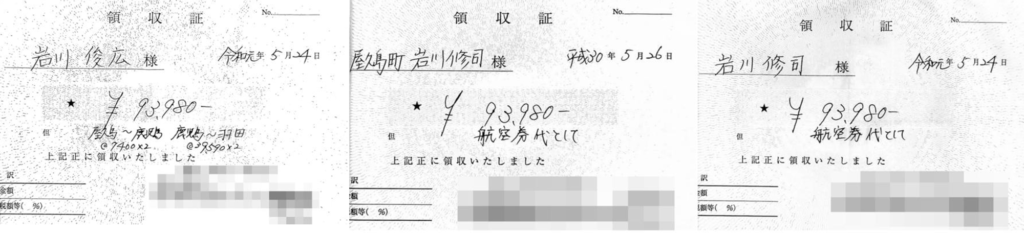 領収証
No.
岩川 俊広 様
令和元年5月24日
★ ¥93,980-
但 屋久島〜鹿児島 鹿児島〜羽田
@7400×2 @39,590×2
上記正に領収いたしました
訳
金額
税額等( %)
領収証
No.
屋久島町 岩川修司 様
平成30年5月26日
★ ¥93,980-
但 航空券代として
上記正に領収いたしました
訳
額
額等( %)
領収証
No.
岩川 修司 様
令和元年5月24日
★ ¥93,980-
但 航空券代として
上記正に領収いたしました
訳
金額
税額等( %)